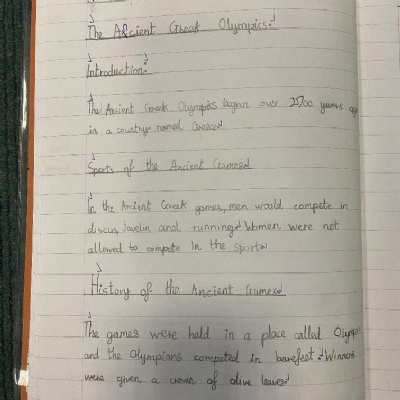 The Ancient Greek Olympics.
Introduction:
The Ancient Greek Olympics began over 2700 years ago
in a country named Greece.
Sports of the Ancient Games
In the Ancient Greek games, men would compete in
discus, Javelin and running. Women were not
allowed to compete in the sport.
History of the Ancient Games
The games were held in a place called Olympia
and the Olympians competed in barefeet. Winners
were given a crown of olive leaves.